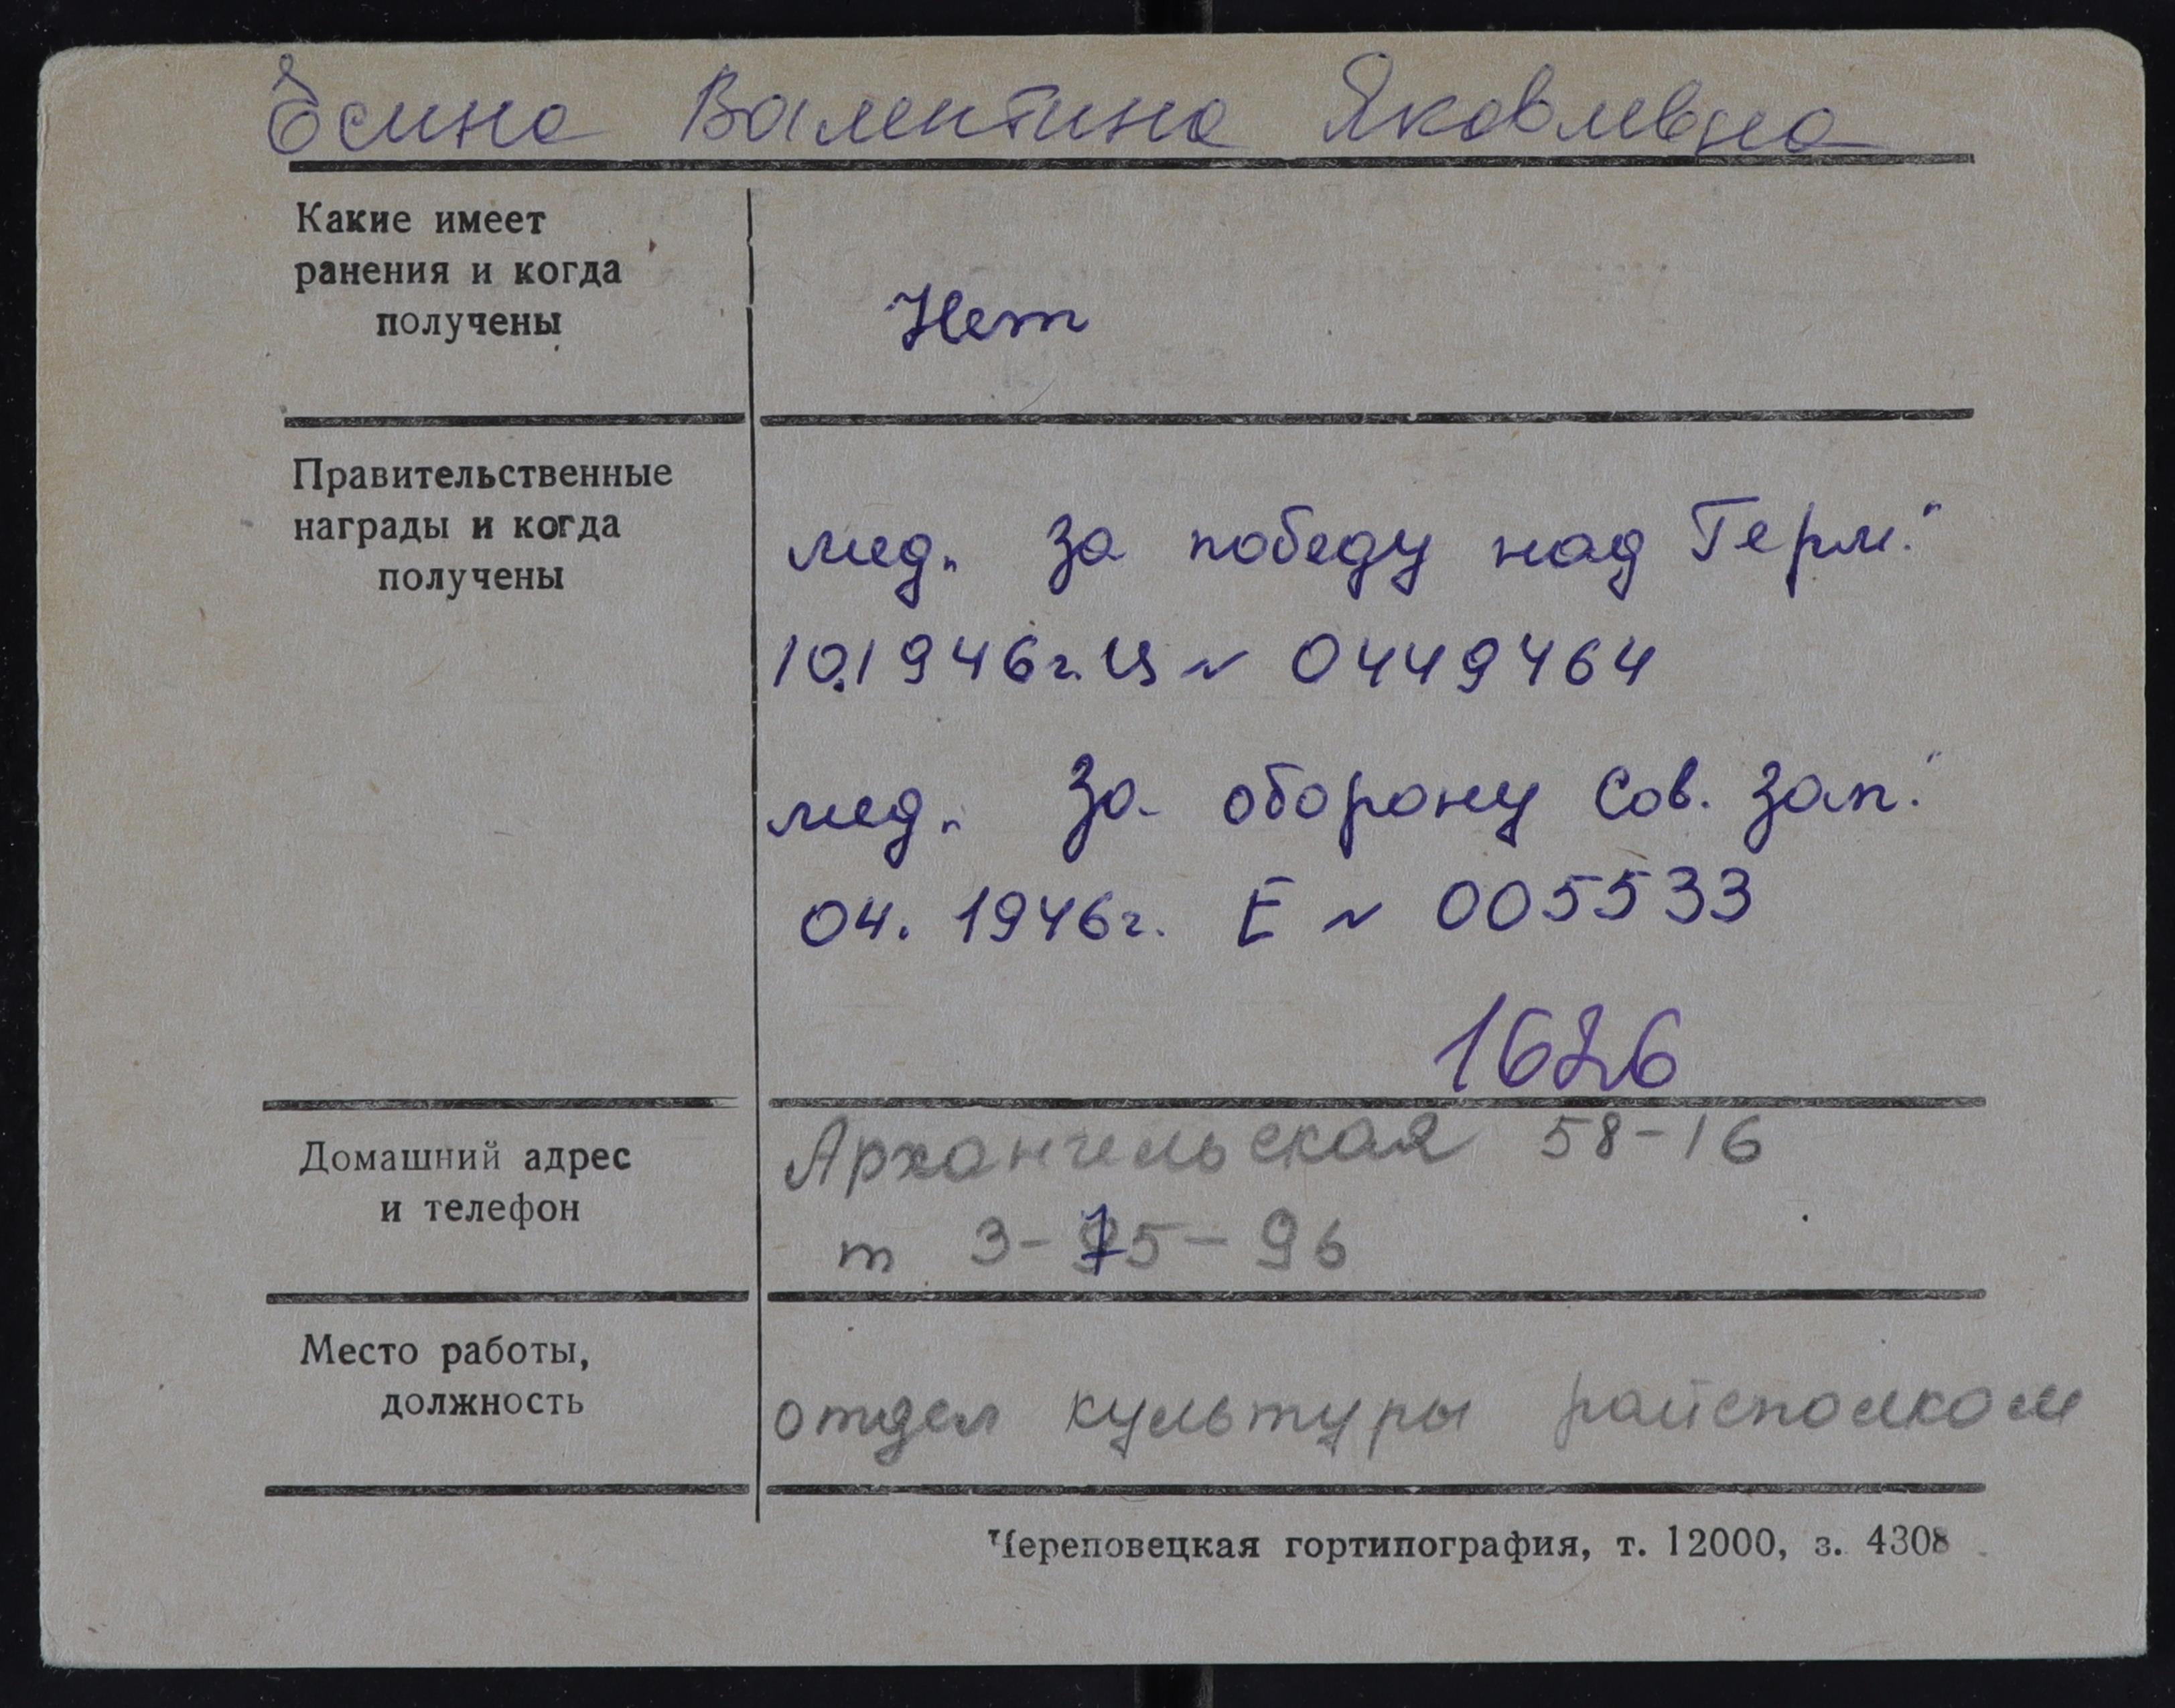 Есина Валентина Яковлевна
Какие имеет
ранения и когда
получены
Нет
Правительственные
награды и когда
получены
мед. „За победу над Герм."
10.1946г. Ц № 0449464
мед. „За оборону Сов. Зап."
04. 1946г. Е № 005533
1626
Домашний адрес
и телефон
Архангельская 58-16
т 3-75-96
Место работы,
должность
отдел культуры райсполком
Череповецкая гортипография, т. 12000, з. 4308